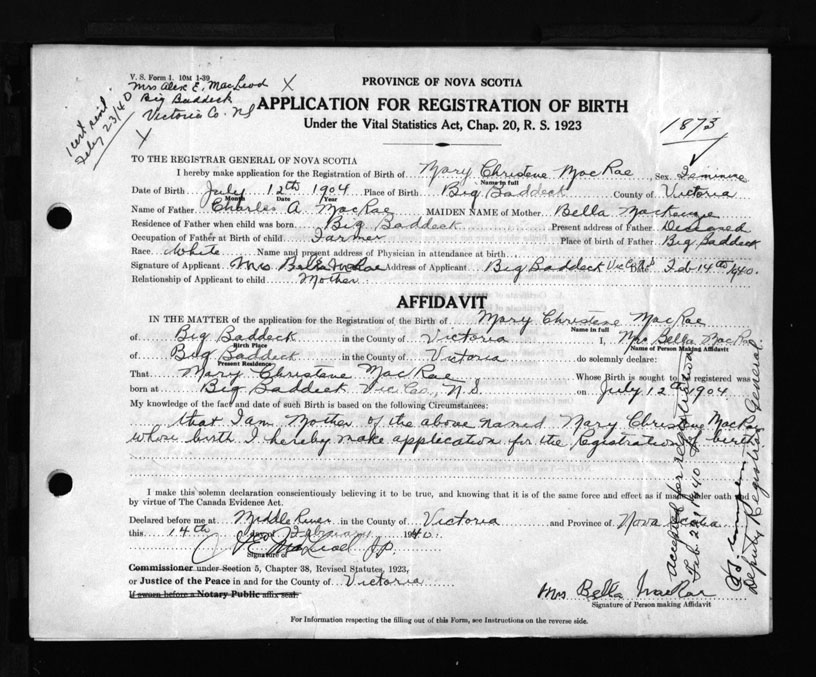 V. S. Form 1. 10M 1-39
Mrs Alex E. MacLeod X
Big Baddeck
Victoria Co. NS
X
1 cert sent
Feby 23/40
PROVINCE OF NOVA SCOTIA
APPLICATION FOR REGISTRATION OF BIRTH
Under the Vital Statistics Act, Chap. 20, R. S. 1923
1873
TO THE REGISTRAR GENERAL OF NOVA SCOTIA
I hereby make application for the Registration of Birth of Mary Christene MacRae Sex Feminine
Name in full
Date of Birth July 12th 1904 Place of Birth Big Baddeck County of Victoria
Month Date Year
Name of Father Charles A MacRae MAIDEN NAME of Mother Bella MacKenzie
Residence of Father when child was born Big Baddeck Present address of Father Deceased
Occupation of Father at Birth of child Farmer Place of birth of Father Big Baddeck
Race White Name and present address of Physician in attendance at birth
Signature of Applicant Mrs Bella McRae Address of Applicant Big Baddeck Vic Co NS Date Feb 14th 1940.
Relationship of Applicant to child Mother
AFFIDAVIT
IN THE MATTER of the application for the Registration of the Birth of Mary Christene MacRae
Name in full
of Big Baddeck in the County of Victoria I, Mrs Bella MacRae
Birth Place Name of Person Making Affidavit
of Big Baddeck in the County of Victoria do solemnly declare:
Present Residence
That Mary Christene MacRae Whose Birth is sought to be registered was
born at Big Baddeck Vic Co., N.S. on July 12th 1904
My knowledge of the fact and date of such Birth is based on the following Circumstances:
that I am Mother of the above named Mary Christene MacRae
whose birth I hereby make application for the Registration of birth
I make this solemn declaration conscientiously believing it to be true, and knowing that it is of the same force and effect as if made under oath and
by virtue of The Canada Evidence Act.
Declared before me at Middle River in the County of Victoria and Province of Nova Scotia
this 14th day of February 1940.
MacLeod J.P.
Signature of
Commissioner under Section 5, Chapter 38, Revised Statutes, 1923,
or Justice of the Peace in and for the County of Victoria
If sworn before a Notary Public affix seal
Mrs Bella MacRae
Signature of Person making Affidavit
For Information respecting the filling out of this Form, see Instructions on the reverse side.
Accepted for registration
Feb. 21, 1940
Deputy Registrar General.